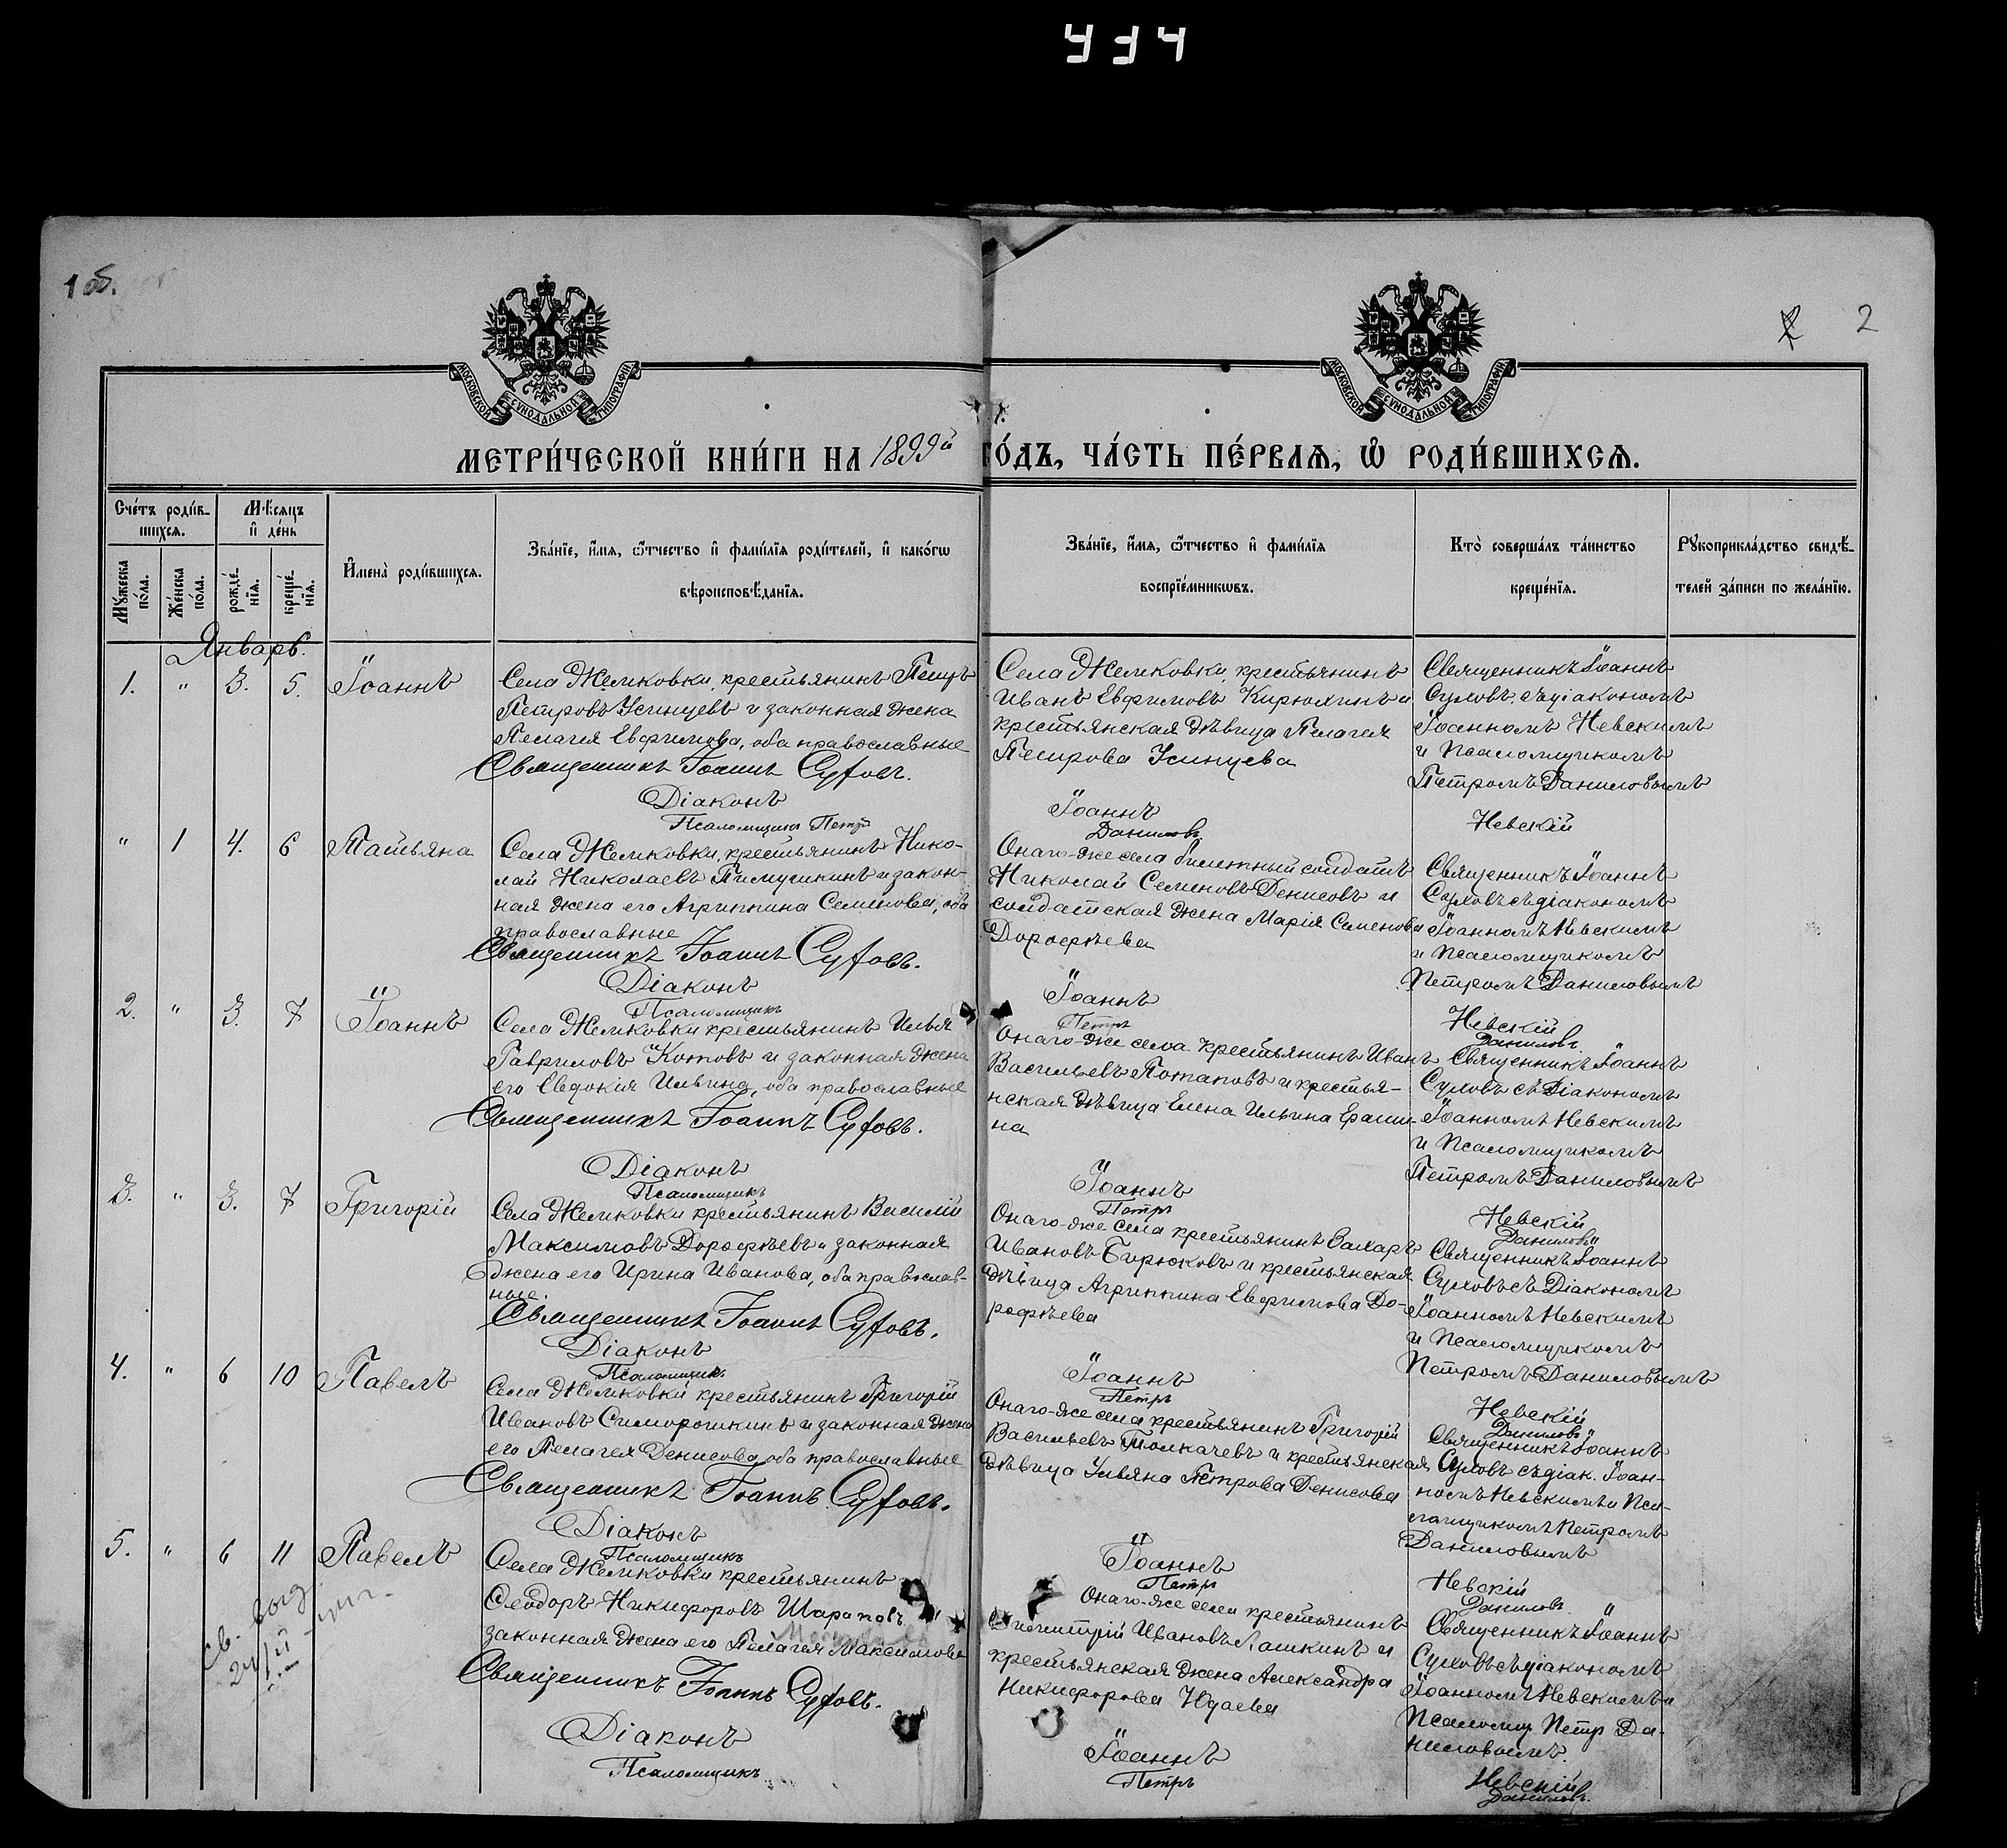 434
1 об.
2
МОСКОВСКОЙ СѴНОДАЛЬНОЙ ТИПОГРАФІИ
МОСКОВСКОЙ СѴНОДАЛЬНОЙ ТИПОГРАФІИ
МЕТРИ́ЧЕСКОЙ КНИ́ГИ НА 1899й ГО́ДЪ, ЧА́СТЬ ПЕ́РВАѦ, Ѡ РОДИ́ВШИХСѦ.
Сче́тъ роди́в-
шихсѧ.
Мѣ́сѧцъ
и҆ де́нь
Му́жеска по́ла.
Же́нска по́ла.
рожде́-
нїѧ.
креще́-
нїѧ.
И҆мена̀ роди́вшихсѧ.
Зва́нїе, и҆́мѧ, ѻ҆́тчество и҆ фами́лїѧ роди́телей, и҆ како́гѡ
вѣроисповѣ́данїѧ.
Зва́нїе, и҆́мѧ, ѻ҆́тчество и҆ фами́лїѧ
воспрїе́мникѡвъ.
Кто̀ соверша́лъ та́инство
креще́нїѧ.
Рꙋкоприкла́дство свидѣ́-
телей за́писи по жела́нїю.
Январь.
1. " 3. 5. Іоаннъ
Села Жемковки, крестьянинъ Петръ
Петровъ Усинцевъ и законная жена
Пелагея Евфимова, оба православные
Священникъ Іоаннъ Суховъ.
Діаконъ
Псаломщикъ Петръ
Села Жемковки, крестьянинъ
Иванъ Евфимовъ Кирюхинъ и
крестьянская дѣвица Пелагея
Петрова Усинцева
Іоаннъ
Данилов
Священникъ Іоаннъ
Суховъ, съ діакономъ
Іоанномъ Невскимъ
и Псаломщикомъ
Петромъ Даниловымъ
Невскій
" 1 4. 6 Татьяна
Села Жемковки, крестьянинъ Нико-
лай Николаевъ Пимушкинъ и закон-
ная жена его Агриппина Семенова, оба
православные
Священникъ Іоаннъ Суховъ.
Діаконъ
Псаломщикъ
Онаго-же села билетный солдатъ
Николай Семеновъ Денисовъ и
солдатская жена Марія Семенова
Дорофѣева
Іоаннъ
Петръ
Священникъ Іоаннъ
Суховъ съ діакономъ
Іоанномъ Невскимъ
и Псаломщикомъ
Петромъ Даниловымъ
Невскій
Даниловъ
2. " 3. 7 Іоаннъ
Села Жемковки крестьянинъ Илья
Гавриловъ Котовъ и законная жена
его Евдокія Ильина, оба православные
Священникъ Іоаннъ Суховъ.
Діаконъ
Псаломщикъ
Онаго-же села крестьянинъ Иванъ
Васильевъ Потаповъ и крестья-
нская дѣвица Елена Ильина Ераши-
на
Іоаннъ
Петръ
Священникъ Іоаннъ
Суховъ съ Діакономъ
Іоанномъ Невскимъ
и Псаломщикомъ
Петромъ Даниловымъ
Невскій
Даниловъ
3. " 3. 7 Григорій
Села Жемковки крестьянинъ Василій
Максимовъ Дорофѣевъ и законная
жена его Ирина Иванова, оба православ-
ные.
Священникъ Іоаннъ Суховъ.
Діаконъ
Псаломщикъ
Онаго-же села крестьянинъ Захаръ
Ивановъ Бирюковъ и крестьянская
дѣвица Агриппина Евфимова До-
рофѣева
Іоаннъ
Петръ
Священникъ Іоаннъ
Суховъ съ Діакономъ
Іоанномъ Невскимъ
и Псаломщикомъ
Петромъ Даниловымъ
Невскій
Даниловъ
4. " 6 10 Павелъ
Села Жемковки крестьянинъ Григорій
Ивановъ Симорошкинъ и законная жена
его Пелагея Денисова оба православные
Священникъ Іоаннъ Суховъ.
Діаконъ
Псаломщикъ
Онаго-же села крестьянинъ Григорій
Васильевъ Толкачевъ и крестьянская
дѣвица Ульяна Петрова Денисова
Іоаннъ
Петръ
Священникъ Іоаннъ
Суховъ съ діак. Іоан-
номъ Невскимъ и Пса-
ломщикомъ Петромъ
Даниловымъ
Невскій
Даниловъ
5. " 6 11 Павелъ
Св. выд
24/II
Села Жемковки крестьянинъ
Ѳеодоръ Никифоровъ Шараповъ и
законная жена его Пелагея Максимова
Священникъ Іоаннъ Суховъ.
Діаконъ
Псаломщикъ
Онаго-же села крестьянинъ
Димитрій Ивановъ Лашкинъ и
крестьянская жена Александра
Никифорова Юдаева
Іоаннъ
Петръ
Священникъ Іоаннъ
Суховъ съ діакономъ
Іоанномъ Невскимъ и
Псаломщ. Петр Да-
ниловымъ.
Невскій
Даниловъ.